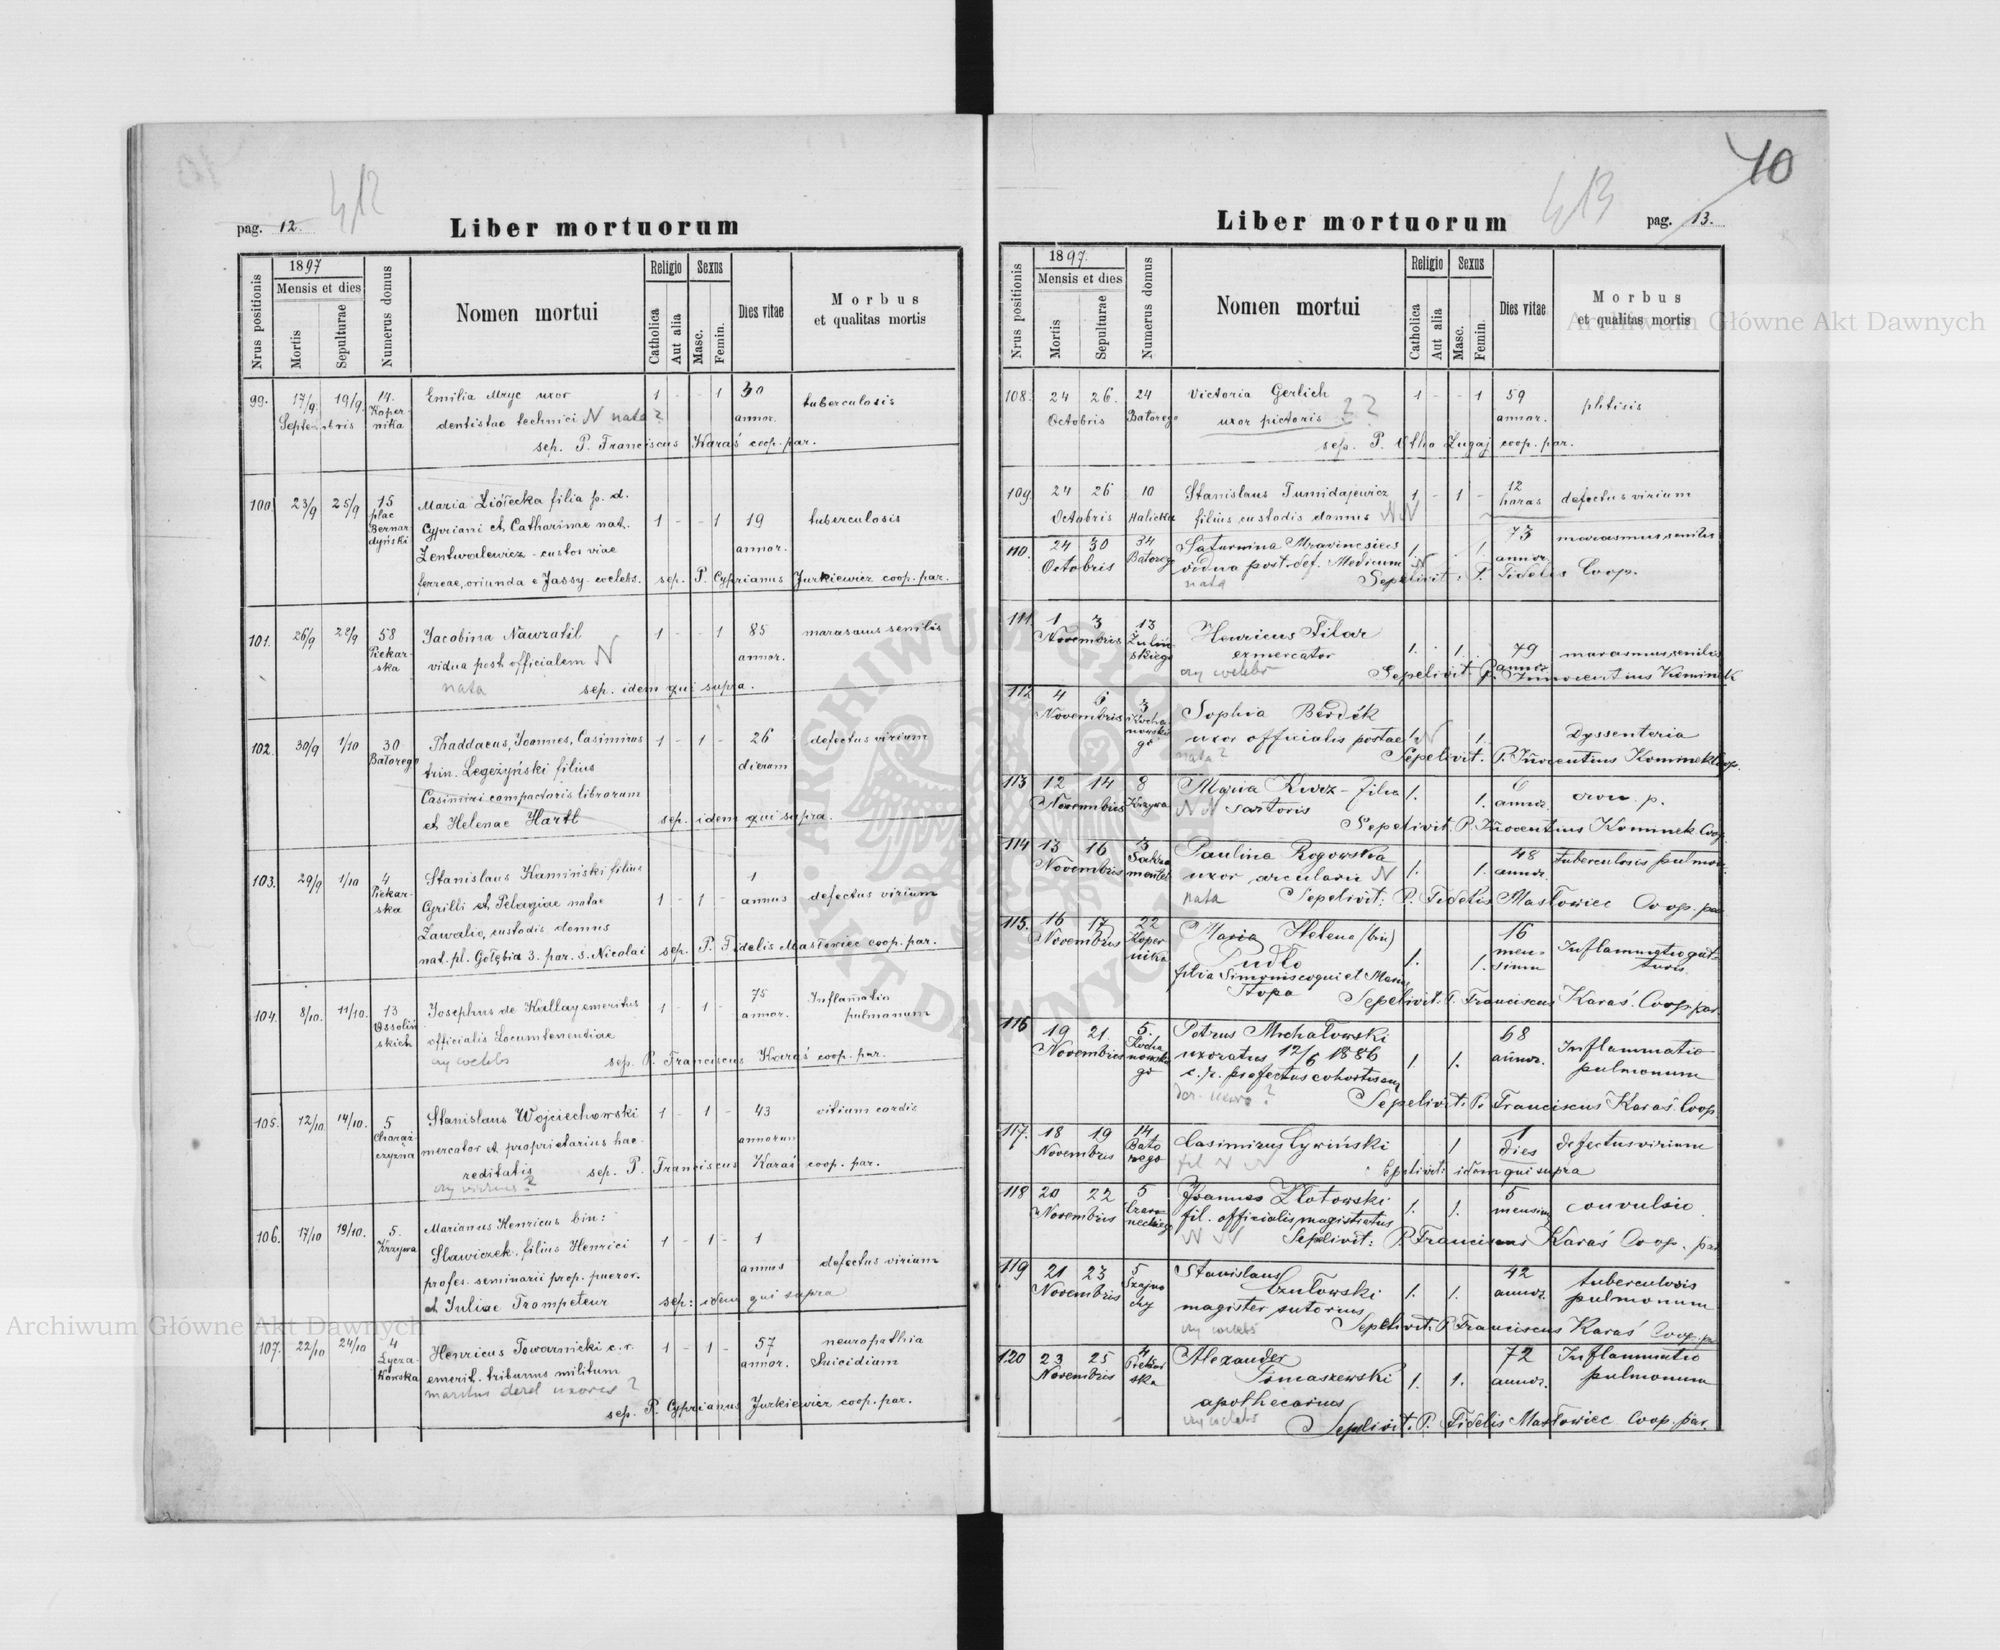 412
pag. 12.
Liber mortuorum
Nrus positionis
1897
Mensis et dies
Mortis
Sepulturae
Numerus domus
Nomen mortui
Religio
Catholica
Aut alia
Sexus
Masc.
Femin.
Dies vitae
Morbus
et qualitas mortis
99. 17/9. 19/9. 14. Emilia Mryc uxor 1 - - 1 30 tuberculosis
Septembris Koper-
nika dentistae technici N nata? annor.
sep. P. Franciscus Karaś coop. par.
100 23/9 25/9 15 Maria filia p. d.
plac Bernar-
dyński Cypriani et Catharinae nat. 1 - - 1 19 tuberculosis
custos viae annor.
ferreae, oriunda e Jassy - coelebs. sep. P. Cyprianus Jurkiewicz coop. par.
101. 26/9 28/9 58 Jacobina Nawratil 1 - - 1 85 marasmus senilis
Piekar-
ska vidua post officialem N annor.
nata sep. idem qui supra.
102. 30/9 1/10 30 Thaddaeus, Joannes, Casimirus 1 - 1 - 26 defectus virium
Batorego trin. Legeżyński filius dierum
Casimiri compactoris librorum
et Helenae Hartl sep. idem qui supra.
103. 29/9 1/10 4 Stanislaus Kamiński filius 1
Piekar-
ska Cyrilli et Pelagiae natae 1 - 1 - annus defectus virium
Zawalio, custodis domus
nat. pl. Gołębia 3. par. s. Nicolai sep. P. Fidelis Masłowiec coop. par.
104. 8/10. 11/10. 13 Josephus de Kallay emeritus 1 - 1 - 75 Inflamatio
Ossoliń-
skich officialis Locumtenentiae annor. pulmonum
czy coelebs sep. P. Franciscus Karaś coop. par.
105. 12/10 14/10. 5 Stanislaus Wojciechowski 1 - 1 - 43 vitium cordis
mercator et proprietarius hae- annorum
reditatis sep. P. Franciscus Karaś coop. par.
czy viduus?
106. 17/10 19/10. 5. Marianus Henricus bin:
Krzywa Sławiczek, filius Henrici 1 - 1 - 1
profes. seminarii prep. pueror. annus defectus virium
et Juliae Trompeteur sep: idem qui supra
107. 22/10 24/10 4 Henricus Towarnicki c. r. 1 - 1 - 57 neuropathia
Łycza-
kowska emerit. tribunus militum annor. Suicidium
maritus derel uxoris?
sep. P. Cyprianus Jurkiewicz coop. par.
10
413
Liber mortuorum
pag. 13.
Nrus positionis
1897.
Mensis et dies
Mortis
Sepulturae
Numerus domus
Nomen mortui
Religio
Catholica
Aut alia
Sexus
Masc.
Femin.
Dies vitae
Morbus
et qualitas mortis
108. 24 26. 24 Victoria Gerlich 1 - - 1 59 phtisis
Octobris Batorego uxor pictoris ?? annor.
sep. P. Otho Zugaj coop. par.
109. 24 26 10 Stanislaus Tumidajewicz 1 - 1 - 12 defectus virium
Octobris Halicka filius custodis domus NN horas
110. 24 30 34 Saturnina 1. 1. 73 marasmus senilis
Octobris Batorego vidua post. def. Medicum N annor.
nata Sepelivit: P. Fidelis Coop.
111. 1 3 13 Henricus Filar
Novembris Żuliń-
skiego exmercator 1. 1. 79 marasmus senilis
czy coelebs annor.
Sepelivit P. Innocentius Kominek
112 4 6 3 Sophia
Novembris Kocha-
nowskie-
go uxor officialis postae N 1. Dyssenteria
nata? Sepelivit. P. Innocentius Kominek Coop.
113 12 14 8 Maria Kurz - filia 1. 1. 6 croup.
Novembris Krzywa NN sartoris annor.
Sepelivit. P. Innocentius Kominek Coop
114 13 16 3 Paulina Rogowska 48 tuberculosis pulmon.
Novembris Sakra
mentek uxor arcularii N 1. 1. annor.
nata Sepelivit: P. Fidelis Masłowiec Coop. par
115. 16 17 22 Maria Helena (bin) 16
Novembris Koper
nika Pudło 1. 1. men-
sium Inflammatio gut-
turis.
filia Simonis coqui et Mariae
Stopa Sepelivit. P. Franciscus Karaś. Coop. par.
116 19 21. 5. Petrus Michałowski 68
Novembris Kocha
nowskie
go uxoratus 12/6 1886 1. 1. annor. Inflammatio
pulmonum
c. r. profectus cohortis
der. uxoris? Sepelivit. P. Franciscus Karaś. Coop.
117. 18 19 14 Casimirus Cywiński 1 1 defectus virium
Novembris Bato
rego fil NN dies
Sepelivit: idem qui supra
118 20 22 5 Joannes Złotowski 1. 1. 5 convulsio.
Novembris Czar-
neckiego fil. officialis magistratus mensium
NN Sepelivit: P. Franciscus Karaś Coop. par
119 21 23 5 Stanislaus 42 tuberculosis
Novembris Szajno
chy Czułowski 1. 1. annor. pulmonum
magister sutorius
czy coelebs Sepelivit. P. Franciscus Karaś Coop. par
120 23 25 4 Alexander 72 Inflammatio
Novembris Piekar
ska Tomaszewski 1. 1. annor. pulmonum
apothecarius
czy coelebs Sepelivit. P. Fidelis Masłowiec Coop. par.
Archiwum Główne Akt Dawnych
Archiwum Główne Akt Dawnych
ARCHIWUM GŁÓWNE AKT DAWNYCH